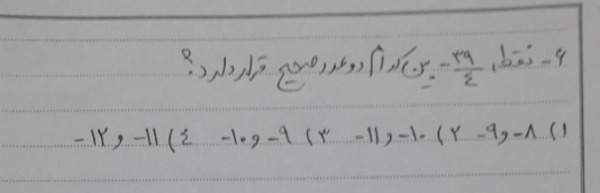 ۶- نقطه ۳۹/۴- بین کدام دو عدد صحیح قرار دارد؟
۱) ۸- و ۹- ۲) ۱۰- و ۱۱- ۳) ۹- و ۱۰- ۴) ۱۱- و ۱۲-